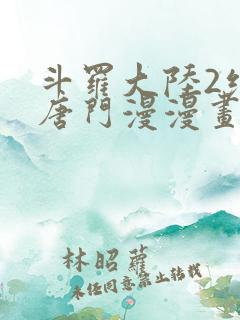 斗羅大陸2絕
唐門漫漫畫
林昭蘿
未經同意禁止轉載